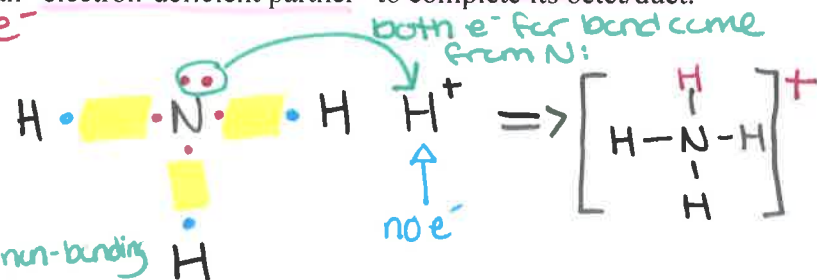 electron-deficient partner to complete its octet/duct.
e⁻ both e⁻ for bond come
from N:
H • • N • • H H⁺ => [ H ]⁺
H—N—H
no e⁻ H
non-bonding H